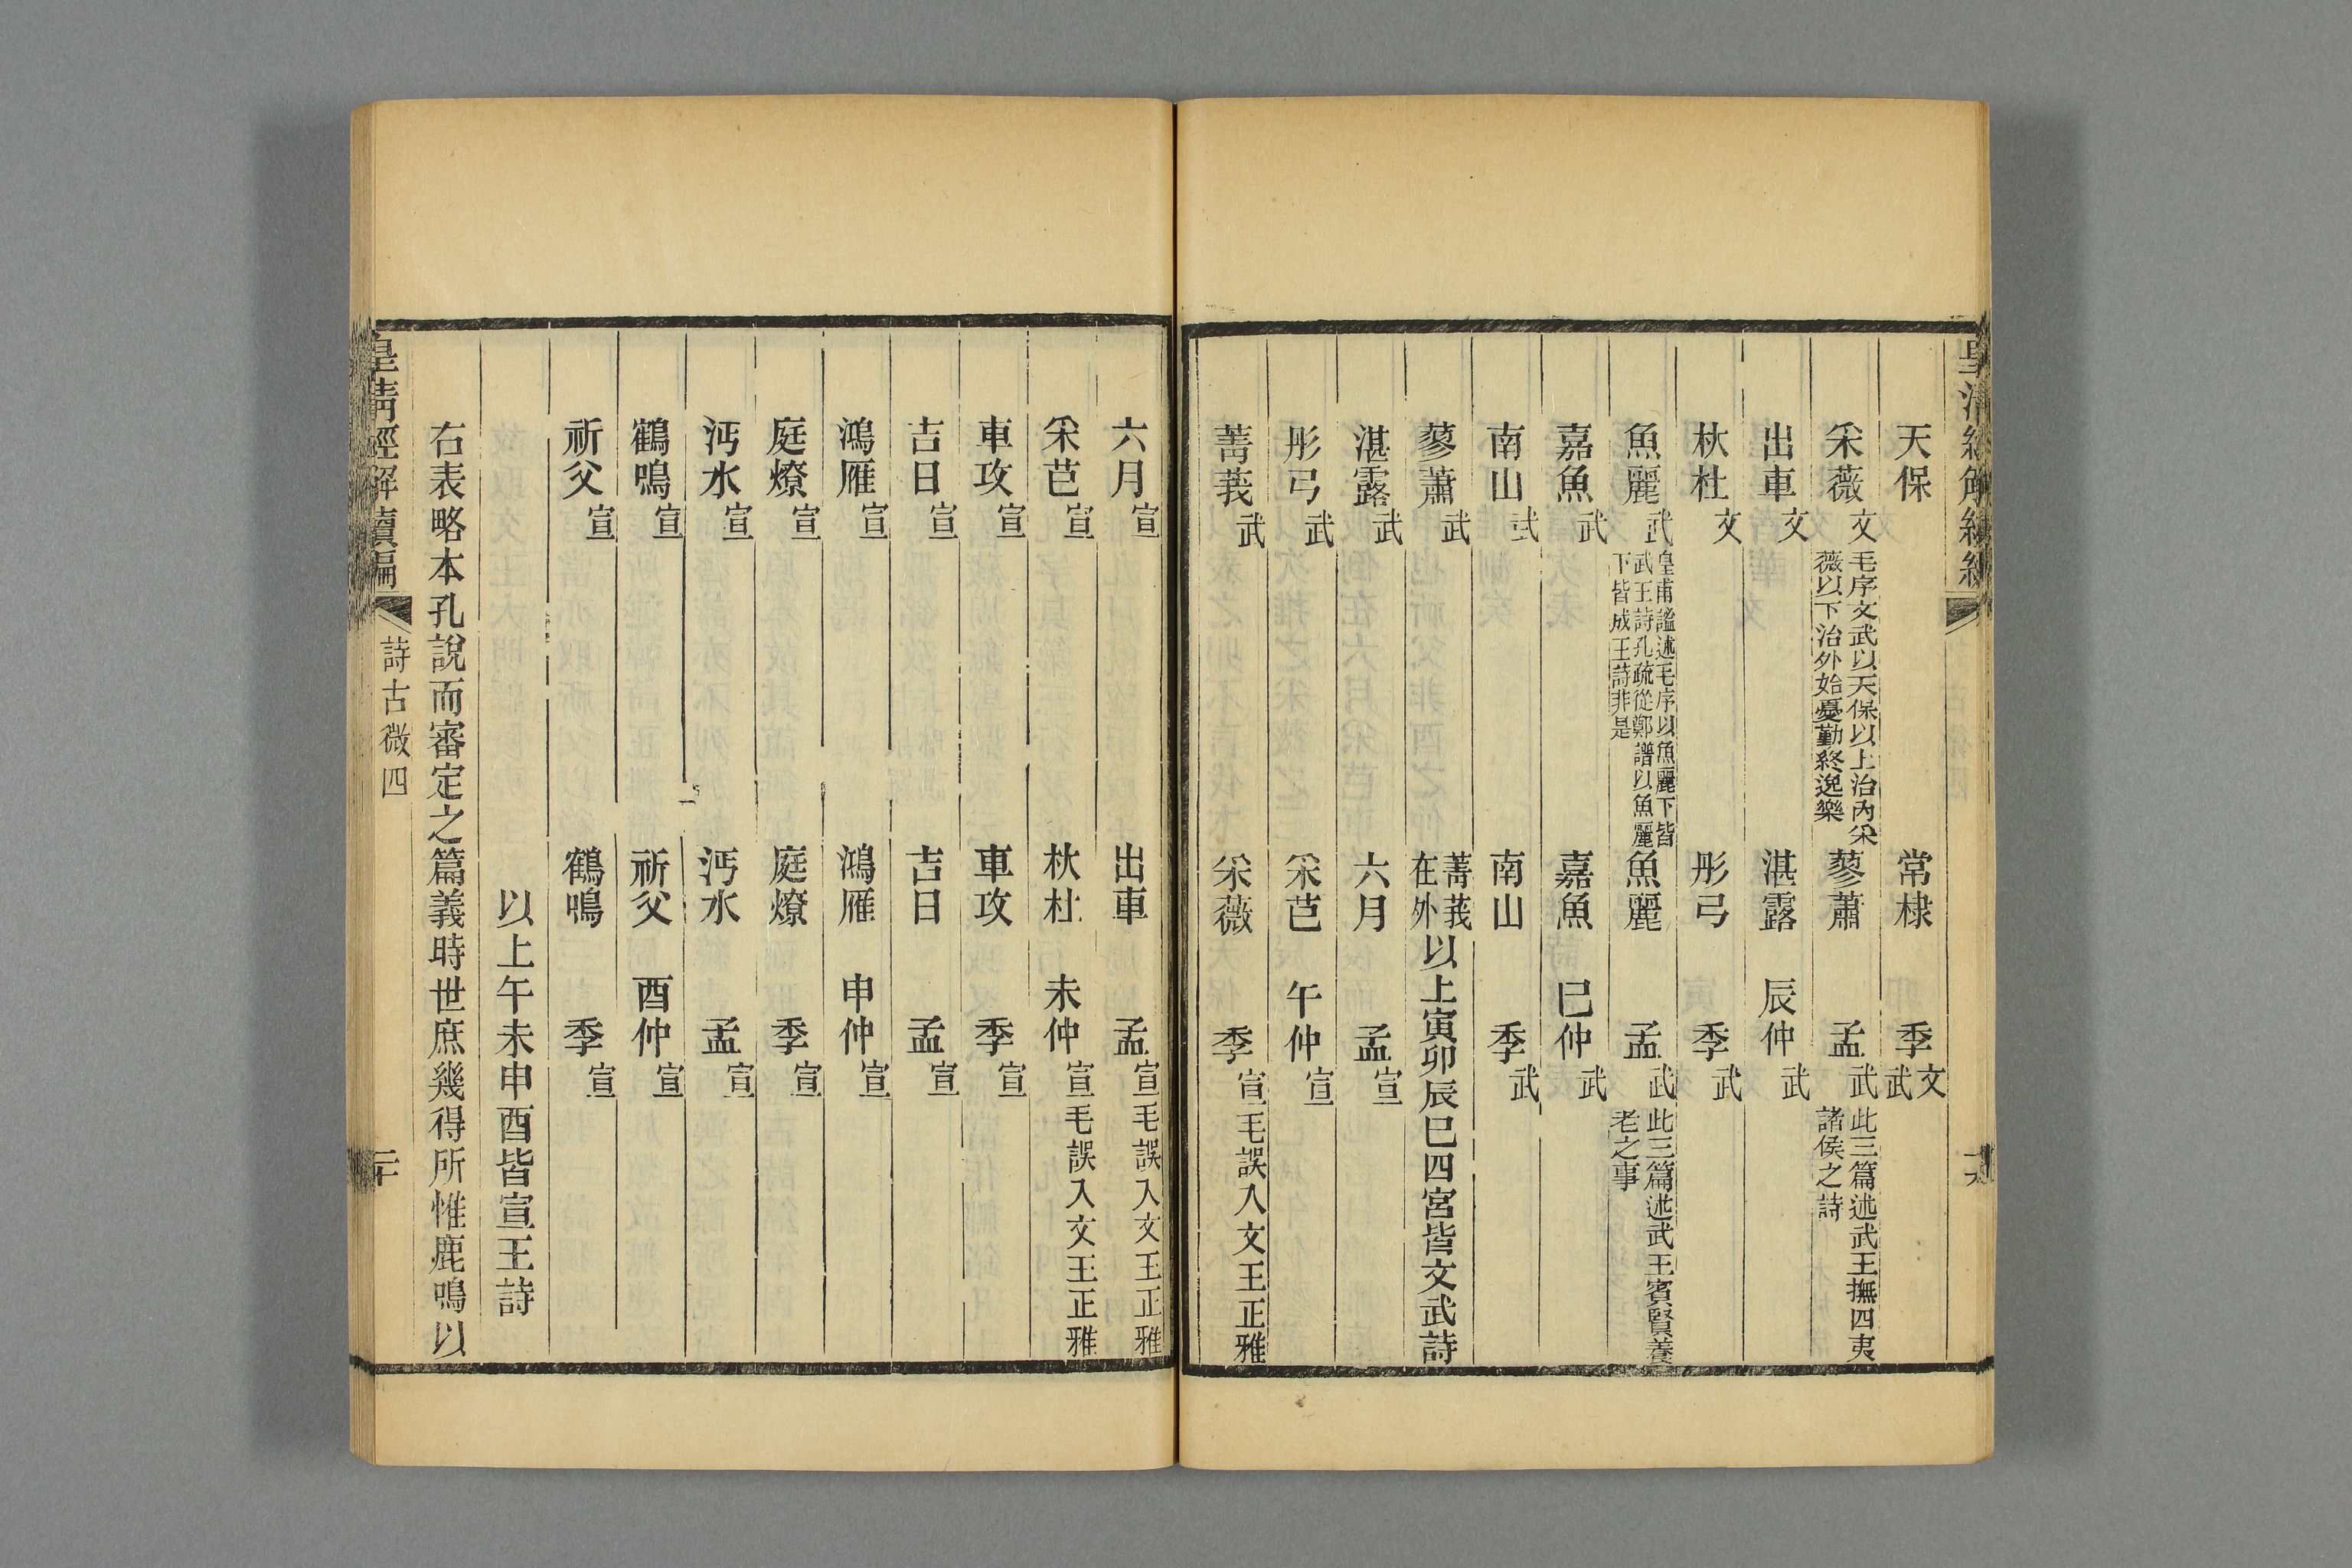 天保　常棣　季文武
采薇文毛序文武以天保以上治內采薇以下治外始憂勤終逸樂　蓼蕭　孟武此三篇述武王撫四夷諸侯之詩
出車文　湛露　辰仲武
杕杜文　彤弓　季武
魚麗武皇甫謐述毛序以魚麗下皆武王詩孔疏從鄭譜以魚麗下皆成王詩非是　魚麗　孟武此三篇述武王賓賢養老之事
嘉魚武　嘉魚　巳仲武
南山武　南山　季武
蓼蕭武　菁莪在外以上寅卯辰巳四宮皆文武詩
湛露武　六月　孟宣
彤弓武　采芑　午仲宣
菁莪武　采薇　季宣毛誤入文王正雅
六月宣　出車　孟宣毛誤入文王正雅
采芑宣　杕杜　未仲宣毛誤入文王正雅
車攻宣　車攻　季宣
吉日宣　吉日　孟宣
鴻雁宣　鴻雁　申仲宣
庭燎宣　庭燎　季宣
沔水宣　沔水　孟宣
鶴鳴宣　祈父　酉仲宣
祈父宣　鶴鳴　季宣
以上午未申酉皆宣王詩
右表略本孔說而審定之篇義時世庶幾得所惟鹿鳴以
皇清經解續編　詩古微四　二十